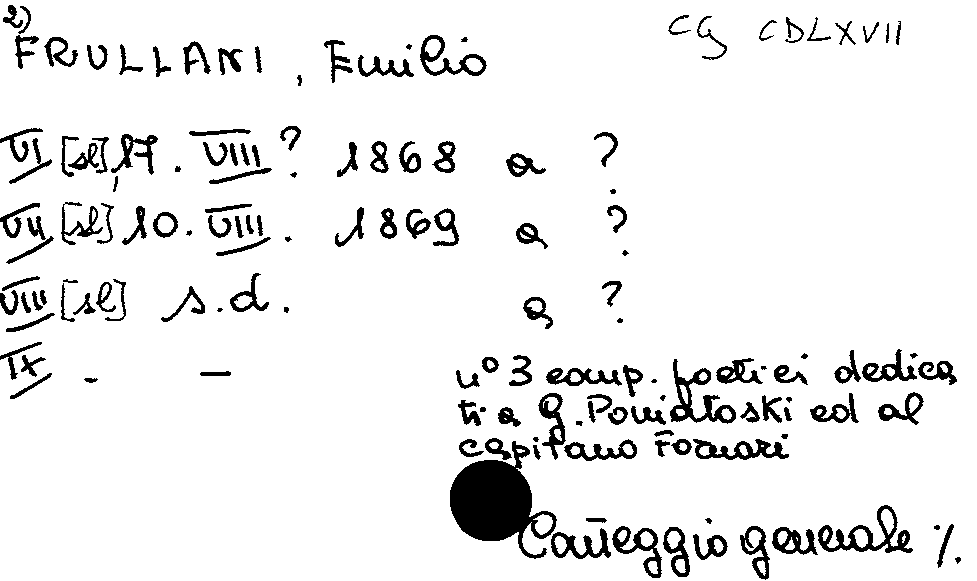 2)
FRULLANI, Emilio CG CDLXVII
VI [sl] 17. VIII? 1868 a ?
VII [sl] 10. VIII. 1869 a ?
VIII [sl] s.d. a ?
IX . — n° 3 comp. poetici dedica
ti a G. Poniatoski ed al
capitano Fornari
Carteggio generale ./.